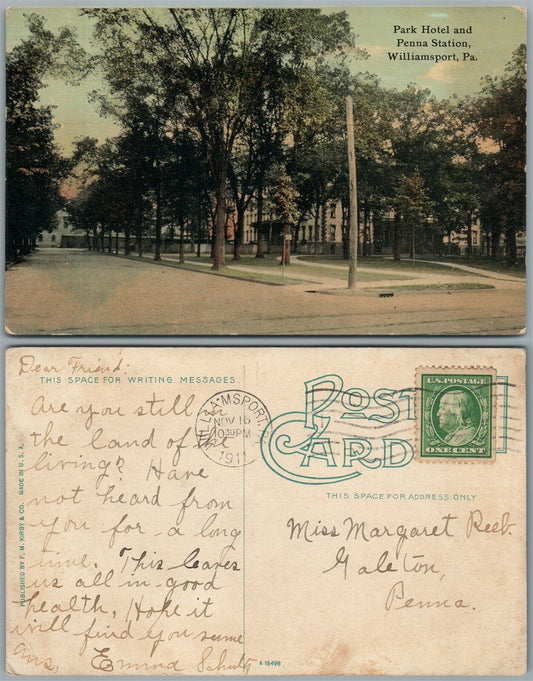 Park Hotel and
Penna Station,
Williamsport, Pa.
Dear Friend:
THIS SPACE FOR WRITING MESSAGES.
Are you still in
the land of the
living? Have
not heard from
you for a long
time. This leaves
us all in good
health, Hope it
will find you same
Ans,
Emma Schultz
PUBLISHED BY F. M. KIRBY & CO. MADE IN U. S. A.
WILLIAMSPORT, PA.
NOV 16
1030PM
1911
POST
CARD
U.S. POSTAGE
ONE CENT
THIS SPACE FOR ADDRESS ONLY.
Miss Margaret Reeb.
Galeton,
Penna.
A 15498